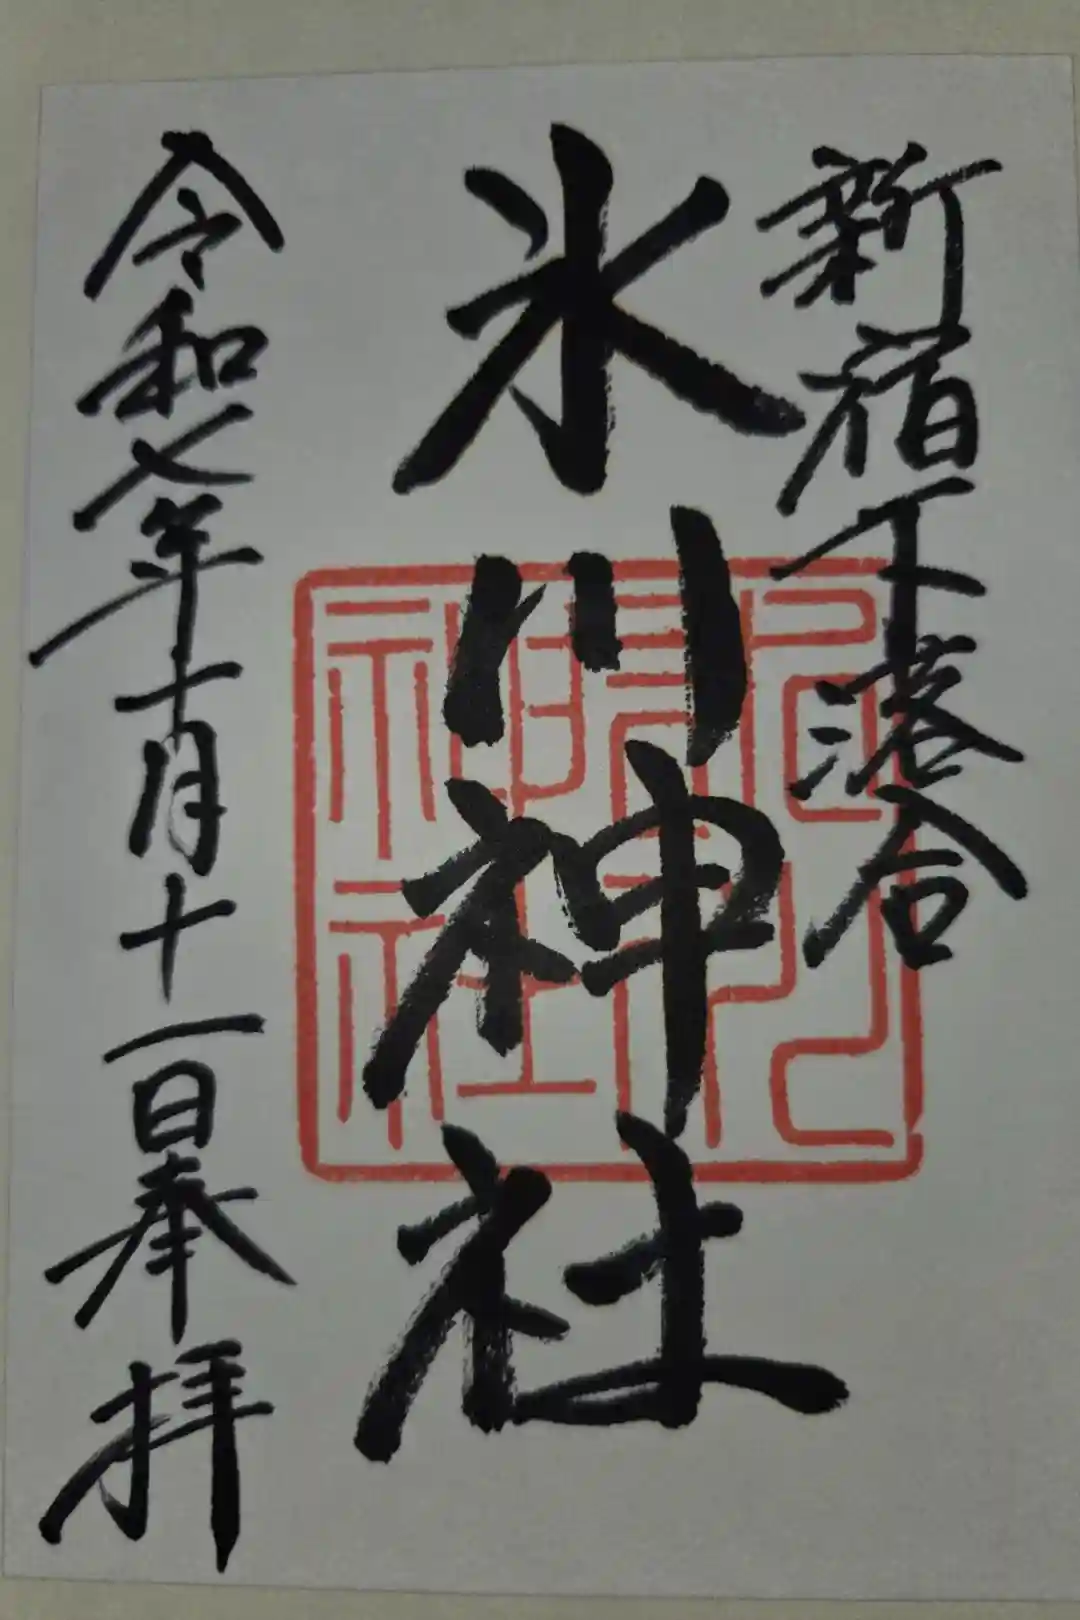 新宿下落合
氷川神社
令和七年十月十一日奉拝